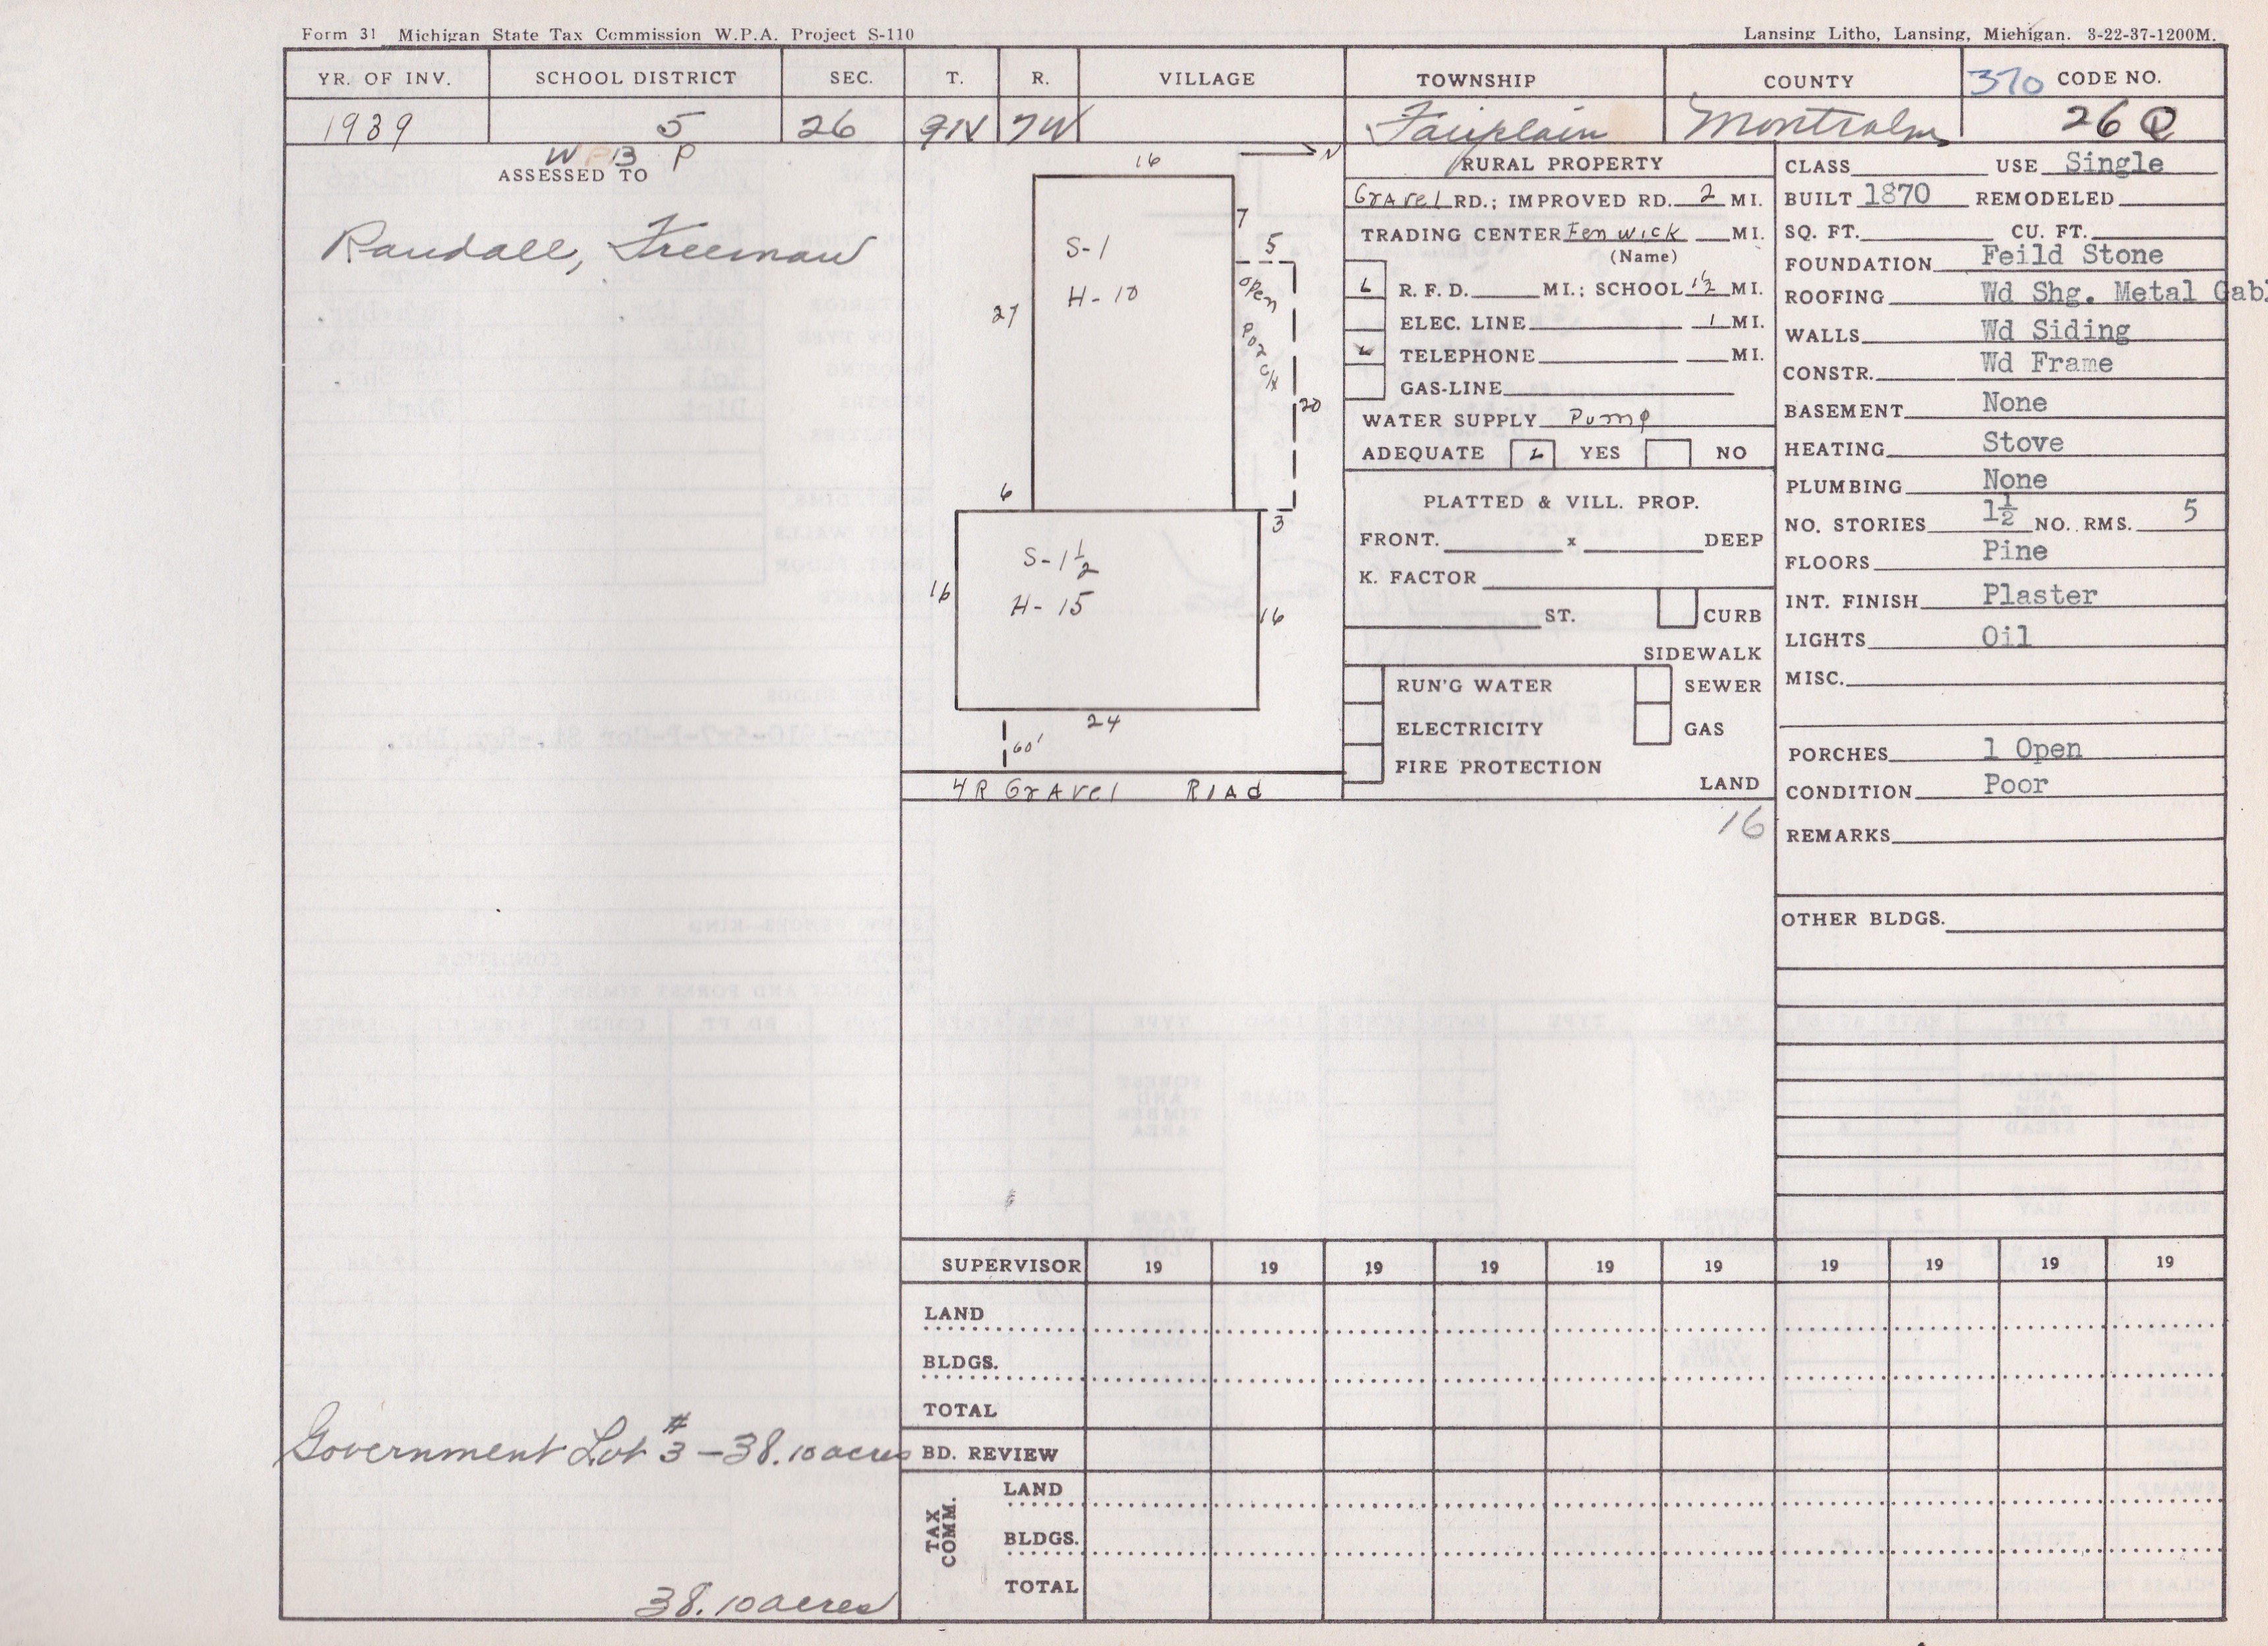 Form 31 Michigan State Tax Commission W.P.A. Project S-110
Lansing Litho, Lansing, Michigan. 3-22-37-1200M.
YR. OF INV. SCHOOL DISTRICT SEC. T. R. VILLAGE TOWNSHIP COUNTY 370 CODE NO.
1939 5 26 9N 7W Fairplain Montcalm 26 Q
W P B P
ASSESSED TO
Randall, Freeman
Government Lot # 3 - 38.10 acres
38.10 acres
16
N
7
5
S-1
H-10
27
Open Porch
20
6
3
S-1½
H-15
16
16
24
60'
4R Gravel Road
RURAL PROPERTY
Gravel RD.; IMPROVED RD. 2 MI.
TRADING CENTER Fenwick MI.
(Name)
R. F. D. MI.; SCHOOL 1½ MI.
ELEC. LINE 1 MI.
TELEPHONE MI.
GAS-LINE
WATER SUPPLY Pump
ADEQUATE YES NO
PLATTED & VILL. PROP.
FRONT. x DEEP
K. FACTOR
ST. CURB
SIDEWALK
RUN'G WATER SEWER
ELECTRICITY GAS
FIRE PROTECTION
LAND
16
CLASS USE Single
BUILT 1870 REMODELED
SQ. FT. CU. FT.
FOUNDATION Feild Stone
ROOFING Wd Shg. Metal Gabl
WALLS Wd Siding
CONSTR. Wd Frame
BASEMENT None
HEATING Stove
PLUMBING None
NO. STORIES 1½ NO. RMS. 5
FLOORS Pine
INT. FINISH Plaster
LIGHTS Oil
MISC.
PORCHES 1 Open
CONDITION Poor
REMARKS
OTHER BLDGS.
SUPERVISOR 19 19 19 19 19 19 19 19 19 19
LAND
BLDGS.
TOTAL
BD. REVIEW
TAX COMM.
LAND
BLDGS.
TOTAL